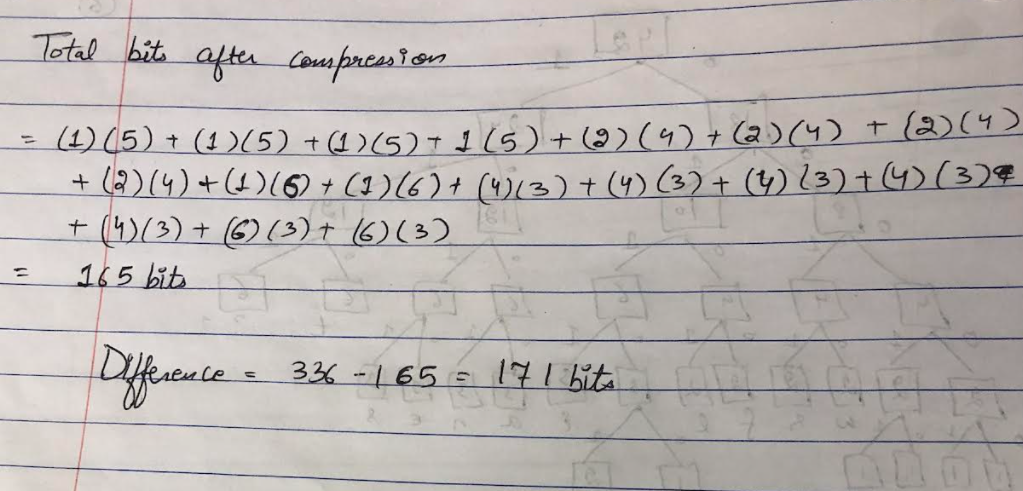 Total bits after compression
= (1)(5) + (1)(5) + (1)(5) + 1(5) + (2)(4) + (2)(4) + (2)(4)
+ (2)(4) + (1)(6) + (1)(6) + (4)(3) + (4)(3) + (4)(3) + (4)(3)
+ (4)(3) + (6)(3) + (6)(3)
= 165 bits
Difference = 336 - 165 = 171 bits